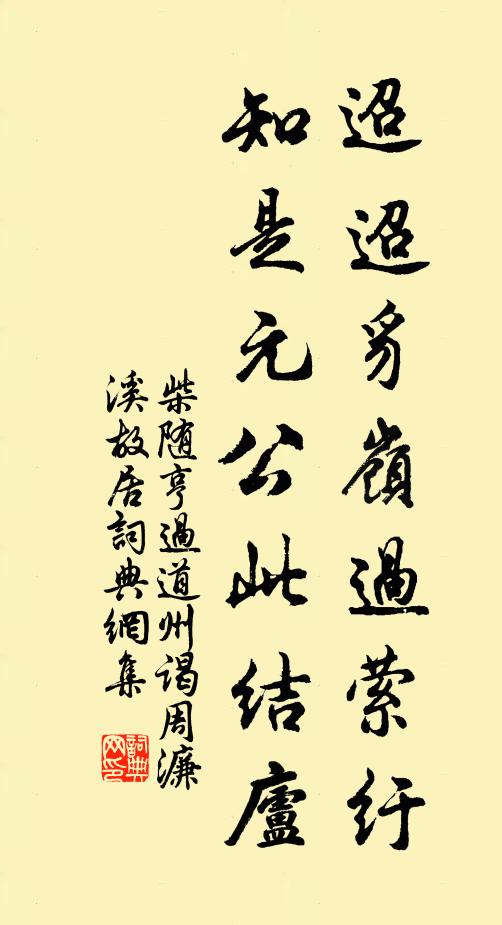 迢迢豸嶺過萦紆
知是元公此結廬
柴随亨過道州謁周濂
溪故居詞典網集
詞典
网印